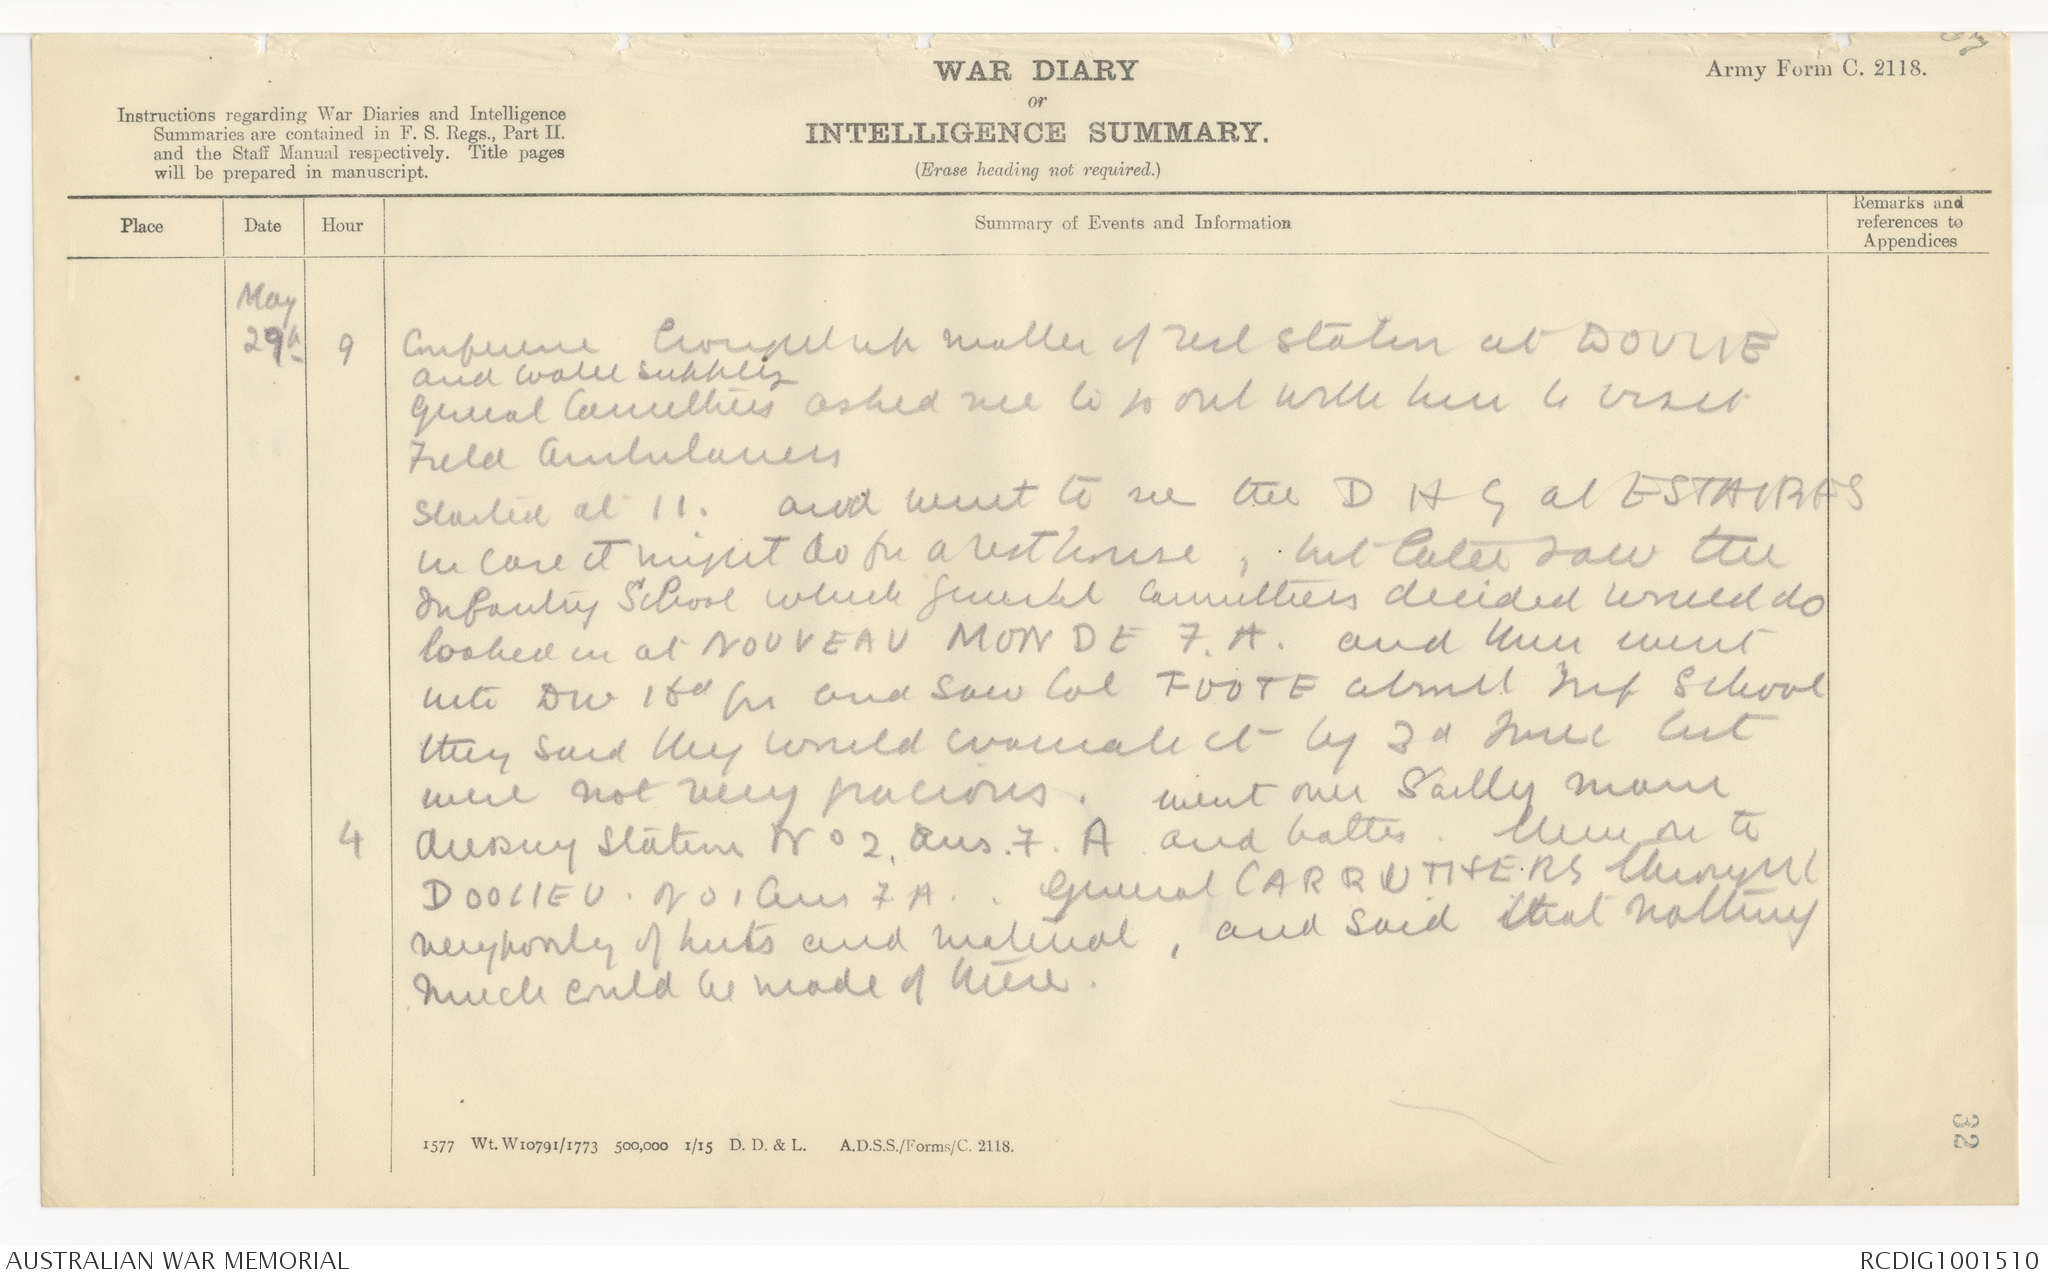 WAR DIARY
or
INTELLIGENCE SUMMARY.
(Erase heading not required.)
Army Form C. 2118.
Instructions regarding War Diaries and Intelligence
Summaries are contained in F. S. Regs., Part II.
and the Staff Manual respectively. Title pages
will be prepared in manuscript.
Place
Date
Hour
Summary of Events and Information
Remarks and
references to
Appendices
May
29th 9 Conference Brought up matter of rest station at
and water supplies
General Carruthers asked me to go out with him to visit
Field Ambulances
Started at 11. and went to see the D H Q at ESTAIRES
in case it might do for a rest house, but later saw the
Infantry School which General Carruthers decided would do
looked in at NOUVEAU MONDE F.A. and then went
into and saw Col FOOTE about Inf School
they said they would evacuate it by 3d June but
were not very gracious. went over Sailly main
4 dressing station No 2. Aus. F. A and baths. then on to
DOOLIEU. No 1 Aus F.A. General CARRUTHERS thought
very poorly of huts and material, and said that nothing
much could be made of there.
1577 Wt. W10791/1773 500,000 1/15 D. D. & L. A.D.S.S./Forms/C. 2118.
32
AUSTRALIAN WAR MEMORIAL
RCDIG1001510